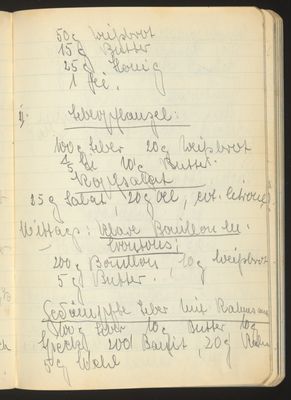 50g Weißbrot
15g Butter
25g Honig
1 Ei.
Leberpflanzel:
100g Leber 20g Weißbrot
Ei 10g Butter.
Kopfsalat
25g Salat, 20g Oel, evt. Citrone.
Mittags: klare Bouillon m.
Croutons;
200g Bouillon, 10g Weißbrot.
5g Butter.
Gedämpfte Leber mit
100g Leber 10g Butter 10g
Speck 200 20g
5g Mehl